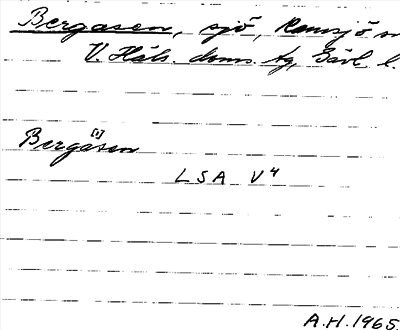 Bergasen, sjö, Ramsjö sn
V. Häls. doms. tg, Gävl. l.
Bergåsen [1]
LSA V4
A.H. 1965.